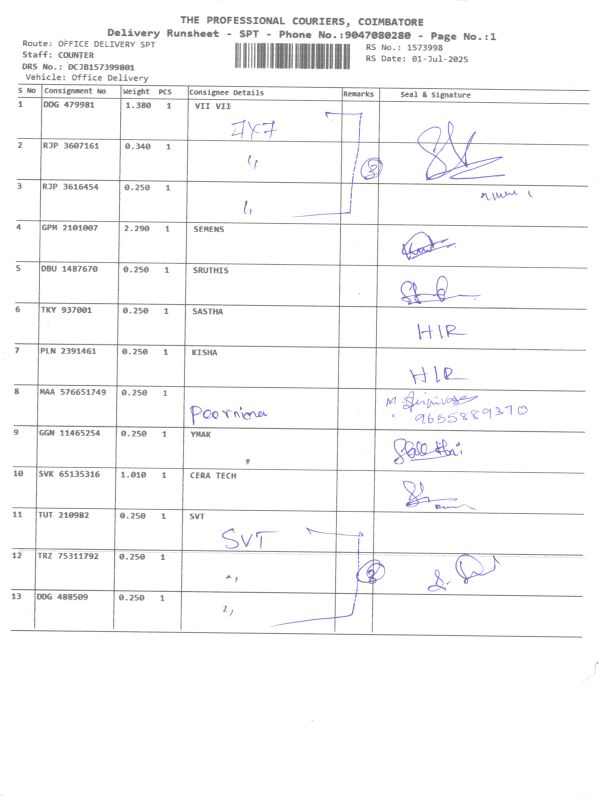 THE PROFESSIONAL COURIERS, COIMBATORE
Delivery Runsheet - SPT - Phone No.:9047080280 - Page No.:1
Route: OFFICE DELIVERY SPT
Staff: COUNTER
DRS No.: DCJB157399801
Vehicle: Office Delivery
RS No.: 1573998
RS Date: 01-Jul-2025
S No Consignment No Weight PCS Consignee Details Remarks Seal & Signature
1 DDG 479981 1.380 1 VII VII
7x7
2 RJP 3607161 0.340 1
" 3
3 RJP 3616454 0.250 1
"
4 GPM 2101007 2.290 1 SEMENS
5 DBU 1487670 0.250 1 SRUTHIS
6 TKY 937001 0.250 1 SASTHA
HIR
7 PLN 2391461 0.250 1 KISHA
HIR
8 MAA 576651749 0.250 1
Poornima
9655889370
9 GGN 11465254 0.250 1 YMAK
10 SVK 65135316 1.010 1 CERA TECH
11 TUT 210982 0.250 1 SVT
SVT
12 TRZ 75311792 0.250 1
" 3
13 DDG 488509 0.250 1
"